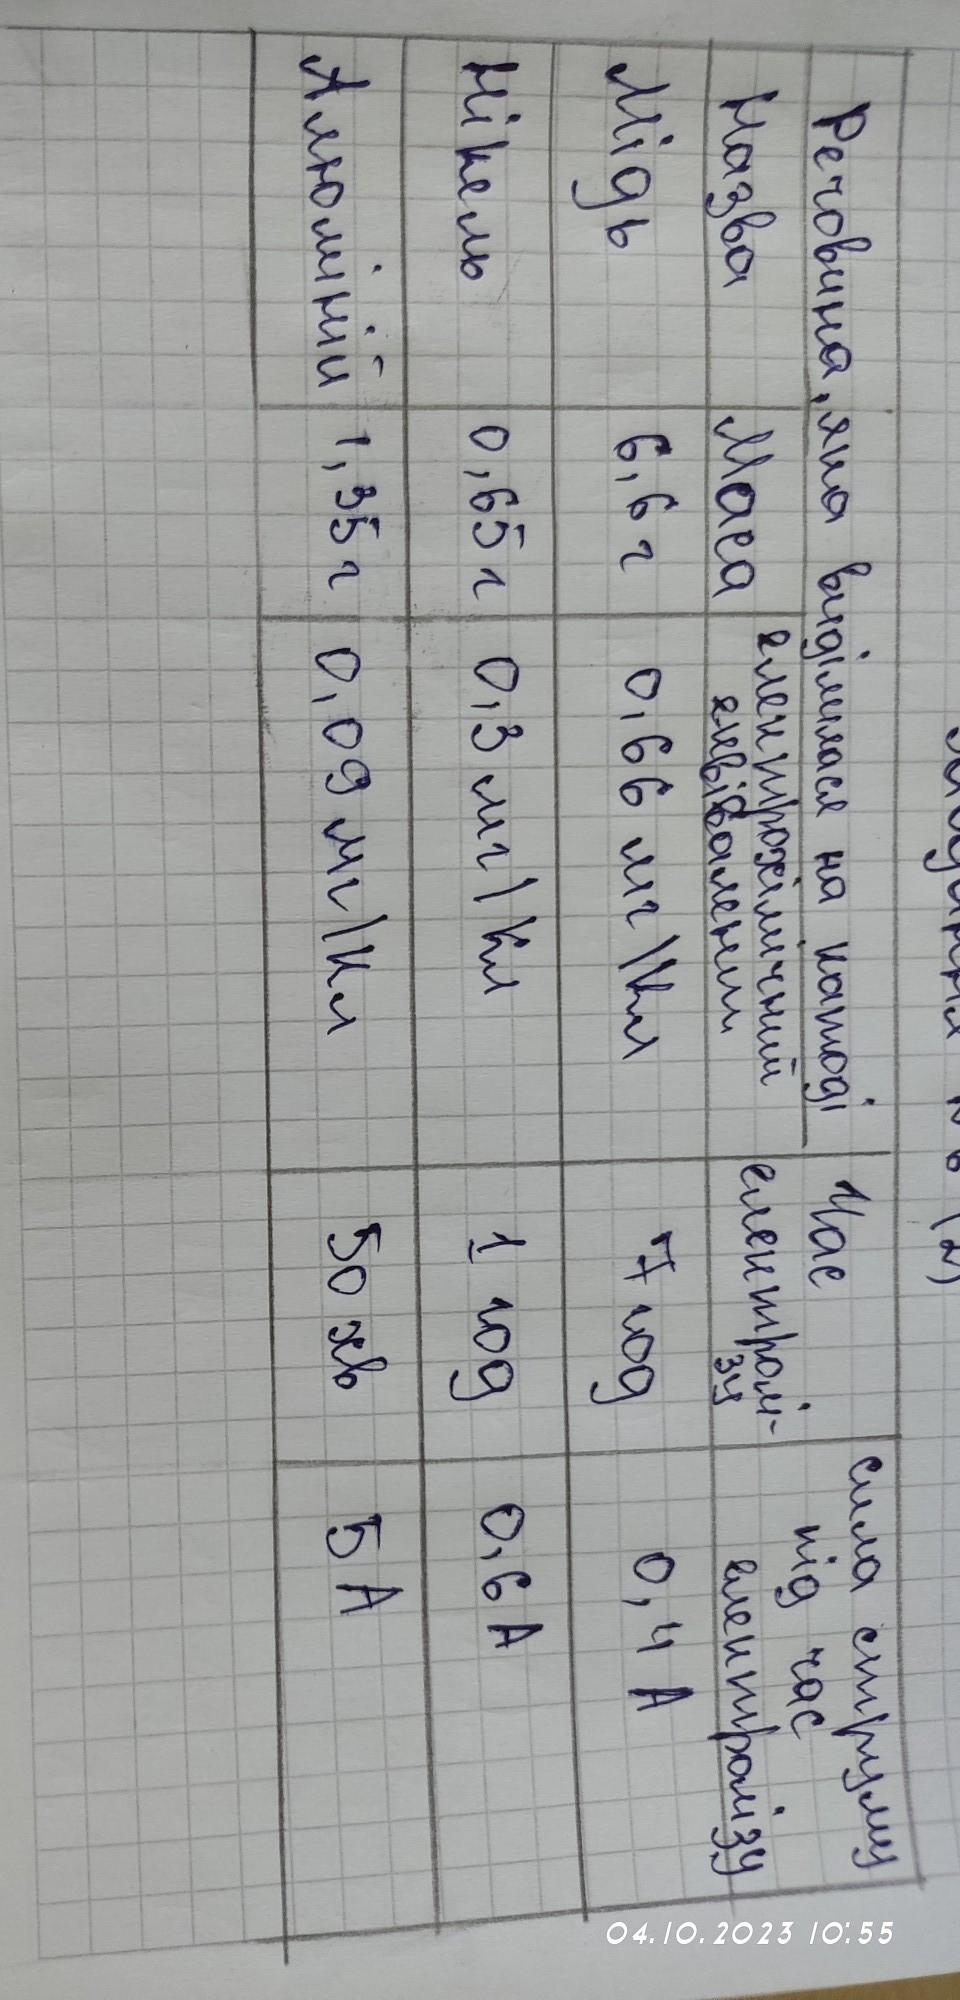 Речовина, яка виділилася на катоді
Час електролі-
зу
сила струму
під час
електролізу
Назва
Маса
електрохімічний
еквівалент
Мідь 6,6 г 0,66 мг/Кл 7 год 0,4 А
Нікель 0,65 г 0,3 мг/Кл 1 год 0,6 А
Алюміній 1,35 г 0,09 мг/Кл 50 хв 5 А
04.10.2023 10:55